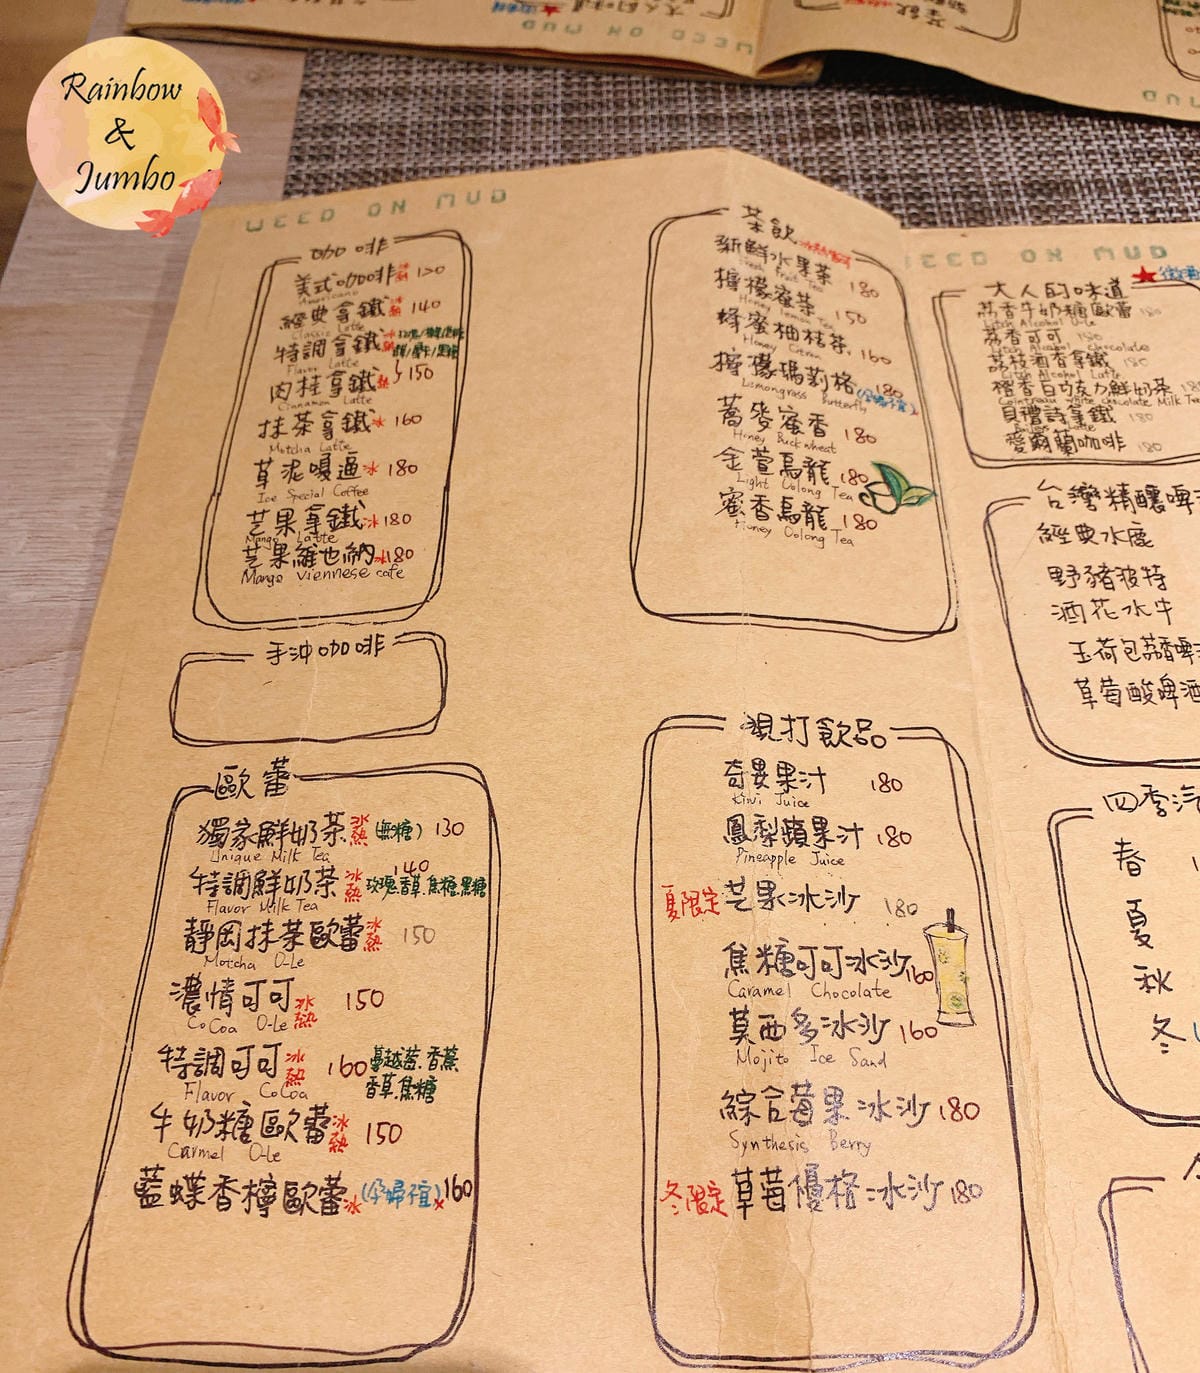 Rainbow
&
Jumbo
WEED ON MUD
咖啡
美式咖啡 冰熱 120
Americano
經典拿鐵 冰熱 140
Classic Latte
特調拿鐵 冰熱
Flavor Latte
150
肉桂拿鐵 熱
Cinnamon Latte
抹茶拿鐵 冰 160
Matcha Latte
草泥嗄逼 冰 180
Ice Special Coffee
芒果拿鐵 冰 180
Mango Latte
芒果維也納 冰 180
Mango Viennese cafe
手沖咖啡
歐蕾
獨家鮮奶茶 冰熱 (無糖) 130
Unique Milk Tea
140
特調鮮奶茶 冰熱 玫瑰.香草.焦糖.黑糖
Flavor Milk Tea
靜岡抹茶歐蕾 冰熱 150
Matcha O-Le
濃情可可 冰熱 150
CoCoa O-Le
特調可可 冰熱 160 蔓越莓.香蕉
香草.焦糖
Flavor CoCoa
牛奶糖歐蕾 冰熱 150
Carmel O-Le
藍蝶香檸歐蕾 冰 (孕婦不宜) 160
茶飲
新鮮水果茶 180
Fresh Fruit Tea
檸檬蜜茶 150
Honey lemon Tea
蜂蜜柚桔茶 160
Honey Citron
檸檬瑪莉格 180 (孕婦不宜)
Lemongrass Butterfly
蕎麥蜜香 180
Honey Buckwheat
金萱烏龍 180
Light Oolong Tea
蜜香烏龍 180
Honey Oolong Tea
現打飲品
奇異果汁 180
Kiwi Juice
鳳梨蘋果汁 180
Pineapple Juice
夏限定 芒果冰沙 180
焦糖可可冰沙 160
Caramel Chocolate
莫西多冰沙 160
Mojito Ice Sand
綜合莓果冰沙 180
Synthesis Berry
冬限定 草莓優格冰沙 180
WEED ON MUD
大人的味道
荔香牛奶糖歐蕾 180
Litch Alcohol O-Le
荔香可可 180
Litch Alcohol chocolate
荔枝酒香拿鐵 180
Litch Alcohol Latte
橙香白巧克力鮮奶茶 180
Cointreau white chocolate Milk Tea
貝禮詩拿鐵 180
Baileys Latte
愛爾蘭咖啡 180
台灣精釀啤
經典水鹿
野豬波特
酒花水牛
玉荷包荔香啤
草莓酸啤酒
四季汽
春
夏
秋
冬